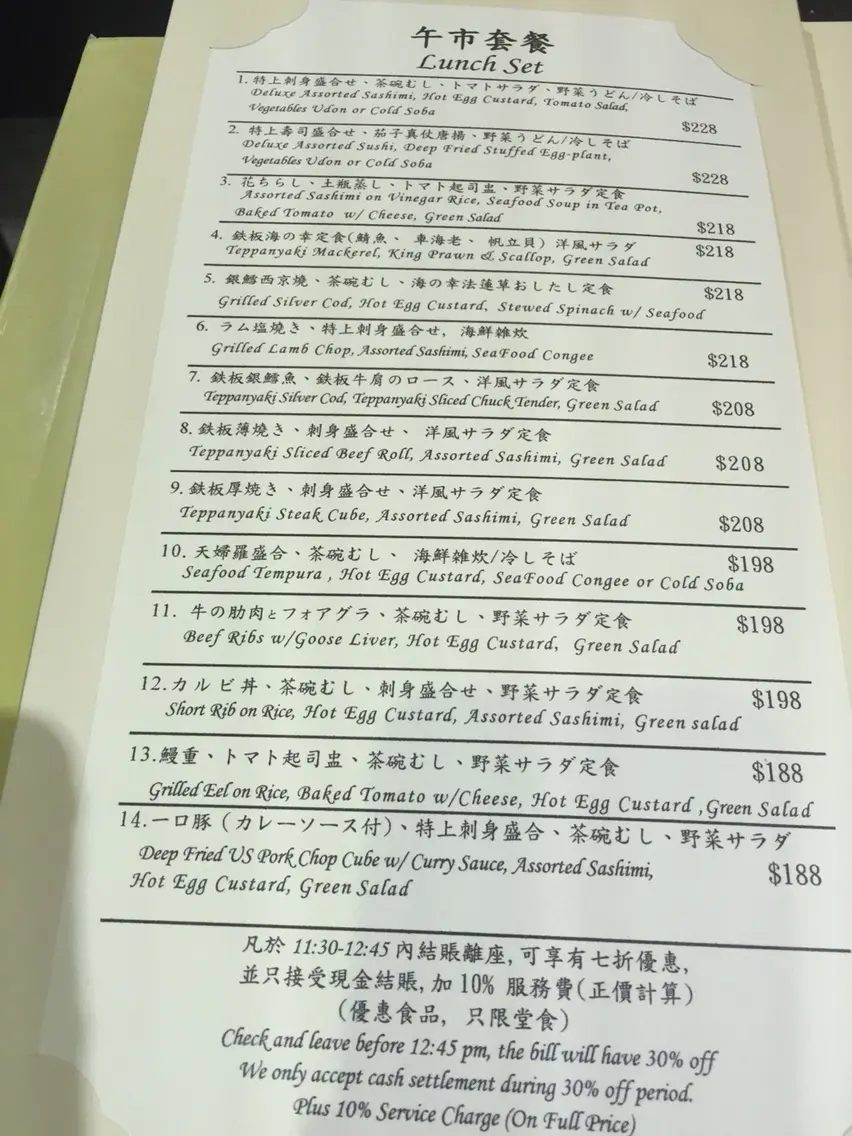 午市套餐
Lunch Set
1. 特上刺身盛合せ、茶碗むし、トマトサラダ、野菜うどん/冷しそば
Deluxe Assorted Sashimi, Hot Egg Custard, Tomato Salad,
Vegetables Udon or Cold Soba
$228
2. 特上壽司盛合せ、茄子真仗唐揚、野菜うどん/冷しそば
Deluxe Assorted Sushi, Deep Fried Stuffed Egg-plant,
Vegetables Udon or Cold Soba
$228
3. 花ちらし、土瓶蒸し、トマト起司盅、野菜サラダ定食
Assorted Sashimi on Vinegar Rice, Seafood Soup in Tea Pot,
Baked Tomato w/ Cheese, Green Salad
$218
4. 鉄板海の幸定食(鯖魚、車海老、帆立貝) 洋風サラダ
$218
Teppanyaki Mackerel, King Prawn & Scallop, Green Salad
5. 銀鱈西京燒、茶碗むし、海の幸法蓮草おしたし定食
$218
Grilled Silver Cod, Hot Egg Custard, Stewed Spinach w/ Seafood
6. ラム塩焼き、特上刺身盛合せ, 海鮮雑炊
Grilled Lamb Chop, Assorted Sashimi, SeaFood Congee
$218
7. 鉄板銀鱈魚、鉄板牛肩のロース、洋風サラダ定食
Teppanyaki Silver Cod, Teppanyaki Sliced Chuck Tender, Green Salad
$208
8. 鉄板薄焼き、刺身盛合せ、 洋風サラダ定食
Teppanyaki Sliced Beef Roll, Assorted Sashimi, Green Salad
$208
9. 鉄板厚焼き、刺身盛合せ、洋風サラダ定食
Teppanyaki Steak Cube, Assorted Sashimi, Green Salad
$208
10. 天婦羅盛合、茶碗むし、 海鮮雑炊/冷しそば
$198
Seafood Tempura , Hot Egg Custard, SeaFood Congee or Cold Soba
11. 牛の肋肉とフォアグラ、茶碗むし、野菜サラダ定食
$198
Beef Ribs w/Goose Liver, Hot Egg Custard, Green Salad
12.カルビ丼、茶碗むし、刺身盛合せ、野菜サラダ定食
$198
Short Rib on Rice, Hot Egg Custard, Assorted Sashimi, Green salad
13.鰻重、トマト起司盅、茶碗むし、野菜サラダ定食
$188
Grilled Eel on Rice, Baked Tomato w/Cheese, Hot Egg Custard ,Green Salad
14.一口豚（カレーソース付）、特上刺身盛合、茶碗むし、野菜サラダ
Deep Fried US Pork Chop Cube w/ Curry Sauce, Assorted Sashimi,
$188
Hot Egg Custard, Green Salad
凡於 11:30-12:45 內結賬離座, 可享有七折優惠,
並只接受現金結賬, 加 10% 服務費(正價計算)
(優惠食品, 只限堂食)
Check and leave before 12:45 pm, the bill will have 30% off
We only accept cash settlement during 30% off period.
Plus 10% Service Charge (On Full Price)